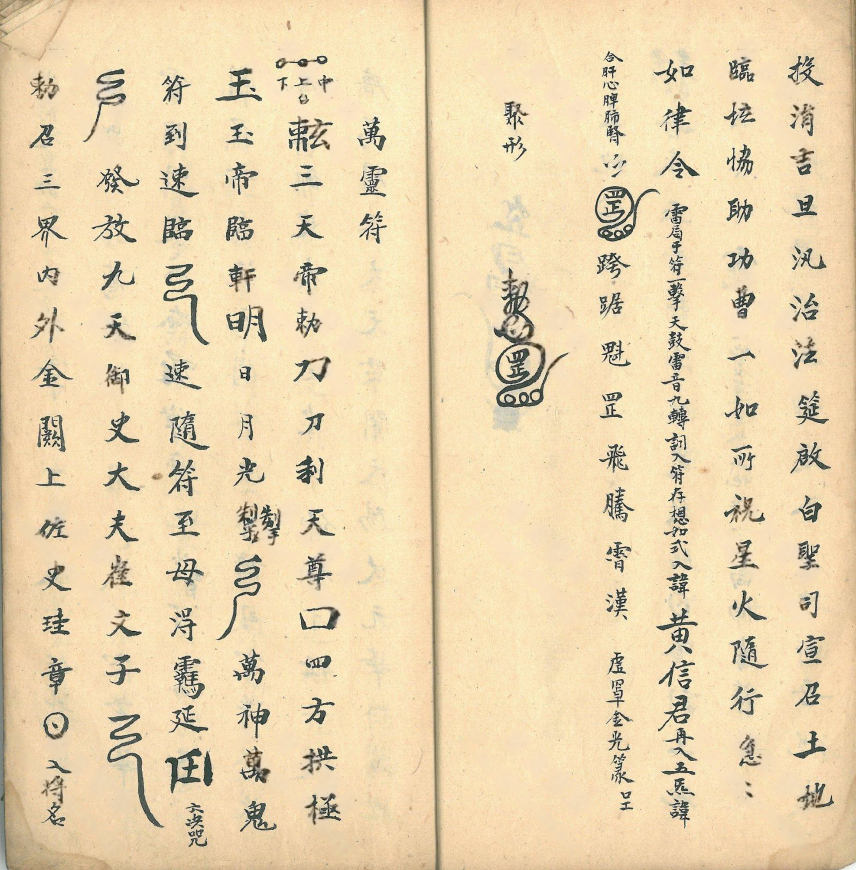 投消吉旦汎治法筵啟白聖司宣召土地
臨坛恊助功曹一如所祝星火隨行急〻
如律令 雷局于符一擊天鼓雷音九轉訶入符存想如式入諱 黄信君 再入五炁諱
合肝心脾肺腎 罡 跨踞魁罡飛騰霄漢 虛冩金光篆
聚形
勅 罡
萬靈符
中上台下 三天帝勅刀刀利天尊口四方拱極
玉玉帝臨軒明日月光掣掣 萬神萬鬼
符到速臨 速隨符至毋得 延 六決咒
發放九天御史大夫崔文子
勅召三界内外金闕上佐史珪章日入將名